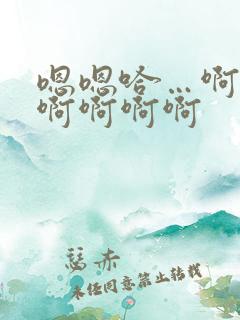 嗯嗯哈…啊
啊啊啊啊
瑟赤
未经同意禁止转载